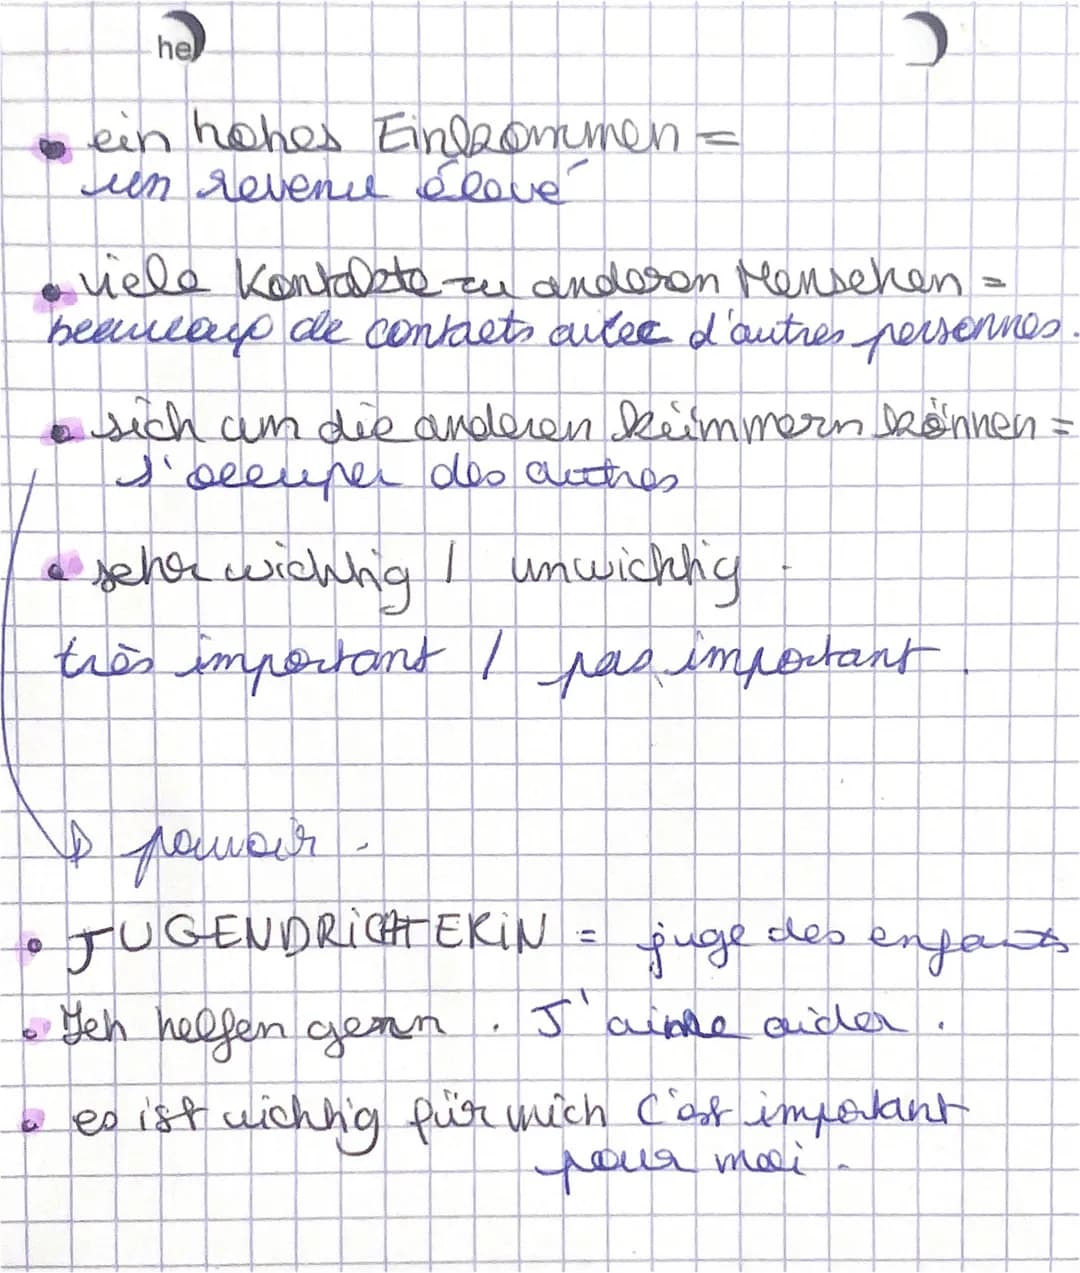 he
• ein hohes Einkommen =
un revenu élevé
• viele Kontakte zu anderen Menschen =
beaucoup de contacts avec d'autres personnes.
• sich um die anderen kümmern können =
s'occuper des autres
• sehr wichtig / unwichtig
très important / pas important.
↳ pouvoir.
• JUGENDRICHTERIN = juge des enfants
• Ich helfen gern. J'aime aider.
• es ist wichtig für mich C'est important
pour moi.